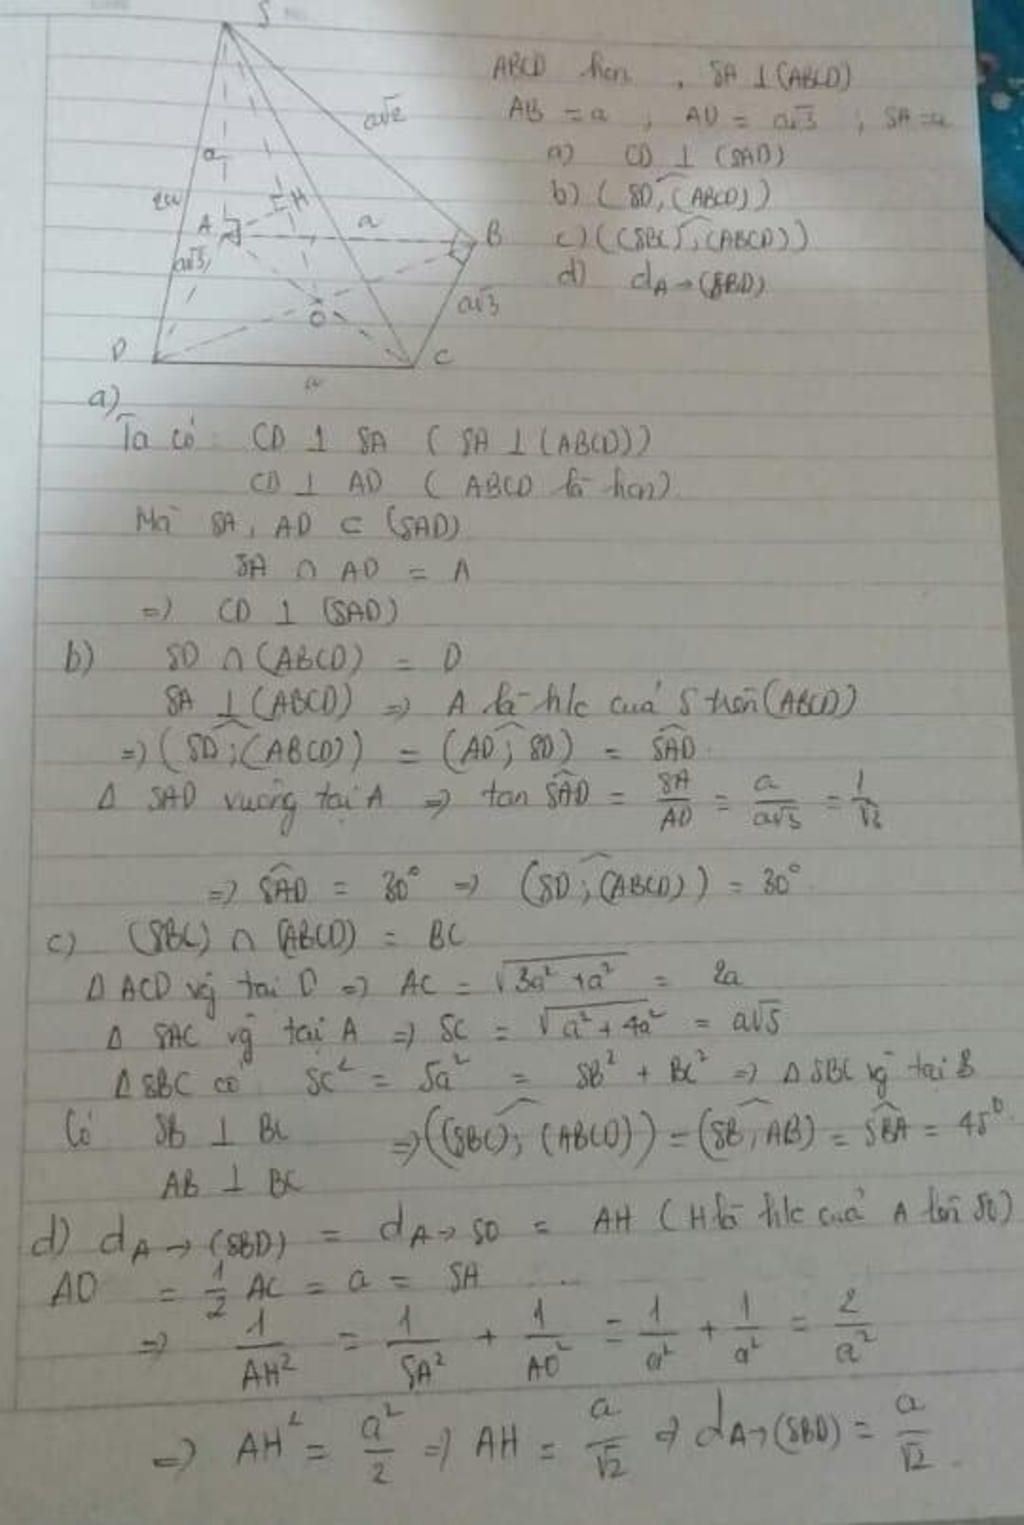 S
ABCD hcn , SA ⊥ (ABCD)
AB = a ; AD = a√3 ; SA = a
a) CD ⊥ (SAD)
b) (SD, (ABCD))
c) ((SBC), (ABCD))
d) dA→(SBD)
a√2
a
2a
H
A
a
B
a√3
a√3
O
D
C
a
a)
Ta có: CD ⊥ SA ( SA ⊥ (ABCD))
CD ⊥ AD ( ABCD là hcn)
Mà SA, AD ⊂ (SAD)
SA ∩ AD = A
=> CD ⊥ (SAD)
b) SD ∩ (ABCD) = D
SA ⊥ (ABCD) => A là h/c của S trên (ABCD)
=> (SD; (ABCD)) = (AD; SD) = SAD
Δ SAD vuông tại A => tan SAD = SA/AD = a/a√3 = 1/√3
=> SAD = 30° => (SD; (ABCD)) = 30°
c) (SBC) ∩ (ABCD) = BC
Δ ACD vg tại D => AC = √3a² + a² = 2a
Δ SAC vg tại A => SC = √a² + 4a² = a√5
Δ SBC có SC² = 5a² = SB² + BC² => Δ SBC vg tại B
Có SB ⊥ BC => ((SBC); (ABCD)) = (SB, AB) = SBA = 45°
AB ⊥ BC
d) dA→(SBD) = dA→SO = AH (H là h/c của A lên SO)
AO = 1/2 AC = a = SA
=> 1/AH² = 1/SA² + 1/AO² = 1/a² + 1/a² = 2/a²
=> AH² = a²/2 => AH = a/√2 => dA→(SBD) = a/√2.